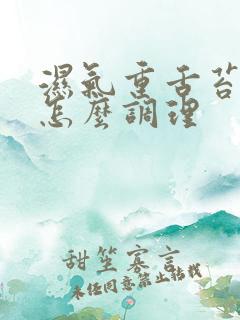 濕氣重舌苔
怎麼調理
甜笙寡言
未经同意禁止转载